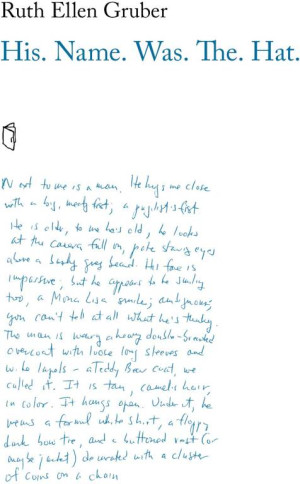 Ruth Ellen Gruber
His. Name. Was. The. Hat.
Next to me is a man. He hugs me close
with a big, meaty fist, a pugilist's fist
He is older, to me he's old, he looks
at the camera full on, pale staring eyes
above a bushy grey beard. His face is
impassive, but he appears to be smiling
too, a Mona Lisa smile, ambiguous,
you can't tell at all what he's thinking.
The man is wearing a heavy double-breasted
overcoat with loose long sleeves and
wide lapels – a Teddy Bear coat, we
called it. It is tan, camel's hair,
in color. It hangs open. Under it, he
wears a formal white shirt, a floppy
dark bow tie, and a buttoned vest (or
maybe jacket) decorated with a cluster
of coins on a chain